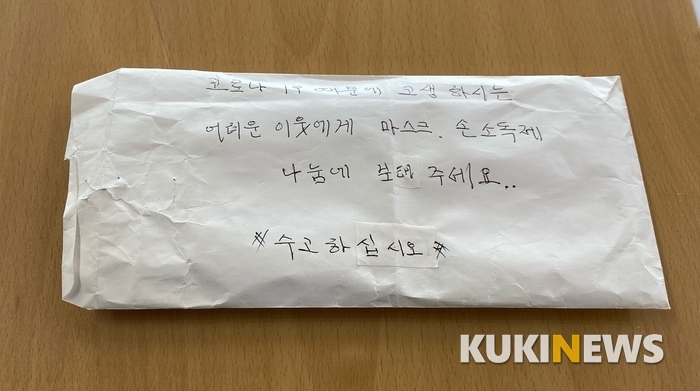 코로나 19 때문에 고생 하시는
어려운 이웃에게 마스크. 손소독제
나눔에 보태 주세요..
* 수고하십시오 *
KUKINEWS